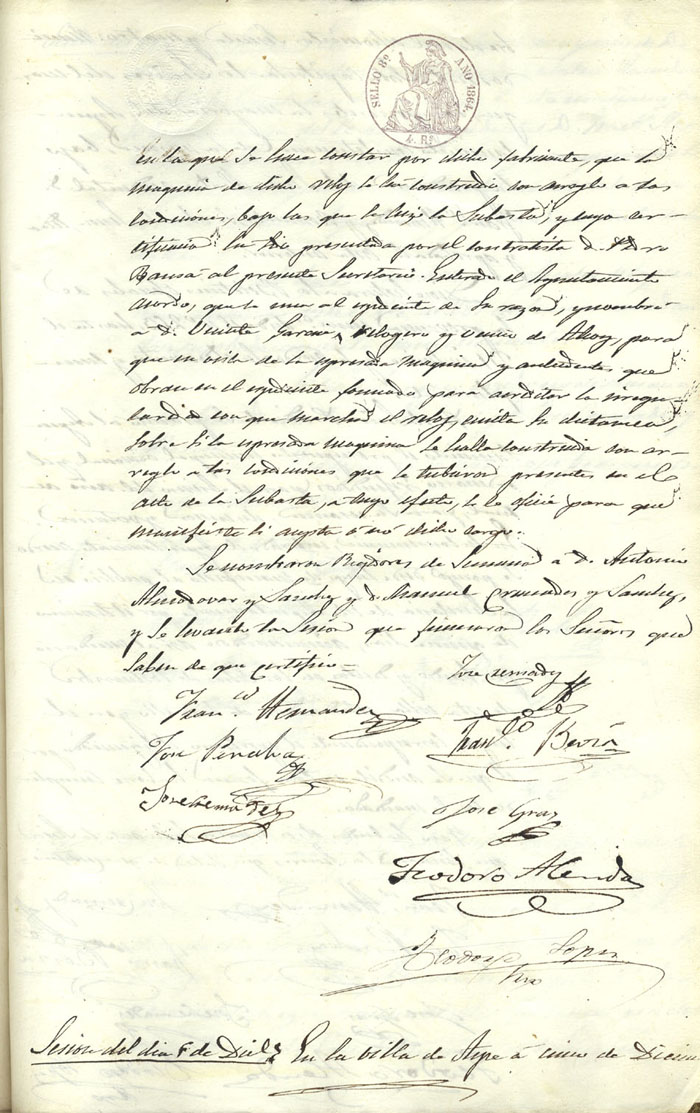 SELLO 8º AÑO 1864.
4 Rs
En la que se hace constar por dicho fabricante, que la
maquina de dicho reloj se ha construido con arreglo a las
condiciones, bajo las que se hizo la Subasta, y cuya cer-
tificacion ha sido presentada por el contratista D. Pedro
Bausá al presente Secretario. Enterado el Ayuntamiento
acordó, que se una al espediente de su razon, y nombró
a D. Vicente Garcia, relogero y vecino de Alcoy, para
que en vista de la espresada maquina y antecedentes que
obran en el espediente formado para acreditar la irregu-
laridad con que marcha el reloj, emita su dictamen,
sobre si la espresada maquina se halla construida con ar-
reglo a las condiciones que se tubieron presentes en el
acto de la Subasta, a cuyo efecto, se le oficie para que
manifieste si acepta o nó dicho cargo.
Se nombraron Regidores de Semana a D. Antonio
Almodovar y Sanchez y D. Manuel Cremades y Sanchez,
y se levantó la Sesion que firmaron los Señores que
saben de que certifico =
Franco Hernandez
Jose Cremades
Jose Peralta
Franco Beviá
Jose
Jose Gras
Teodoro Alenda
Teodoro Lopez
Srio
Sesion del dia 5 de Dice En la villa de Aspe á cinco de Diciem